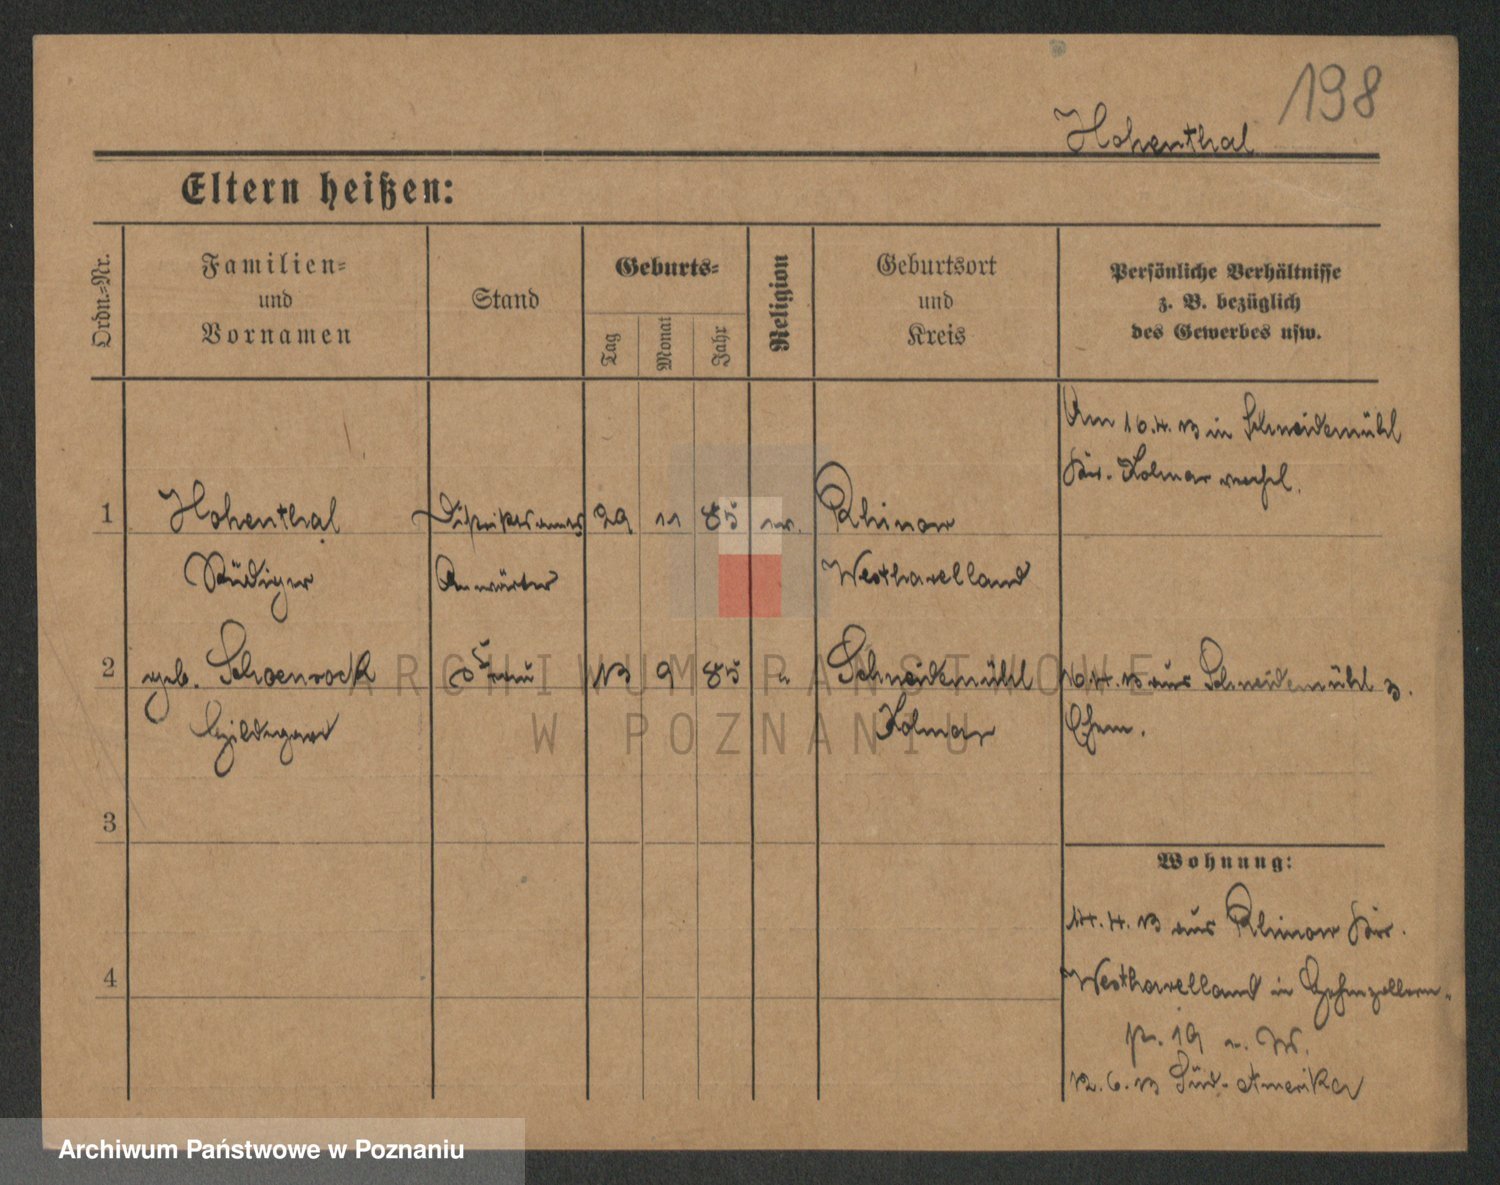 198
Hohenthal
Eltern heißen:
Ordn.-Nr.
Familien-
und
Vornamen
Stand
Geburts-
Tag
Monat
Jahr
Religion
Geburtsort
und
Kreis
Persönliche Verhältnisse
z. B. bezüglich
des Gewerbes usw.
Am 16.4.13 in Schneidemühl
Kr. Kolmar verehel.
1 Hohenthal Distriktsamts 29 11 85 ev. Rhinow
Rüdiger Anwärter Westhavelland
2 geb. Schoenrock Frau 13 9 85 " Schneidemühl 16.4.13 aus Schneidemühl z.
Hildegard Kolmar Ehem.
3
Wohnung:
14.4.13 aus Rhinow Kr.
4
Westhavelland in Hohenzollern-
19
12.6.13 Süd-Amerika
ARCHIWUM PAŃSTWOWE
W POZNANIU
Archiwum Państwowe w Poznaniu